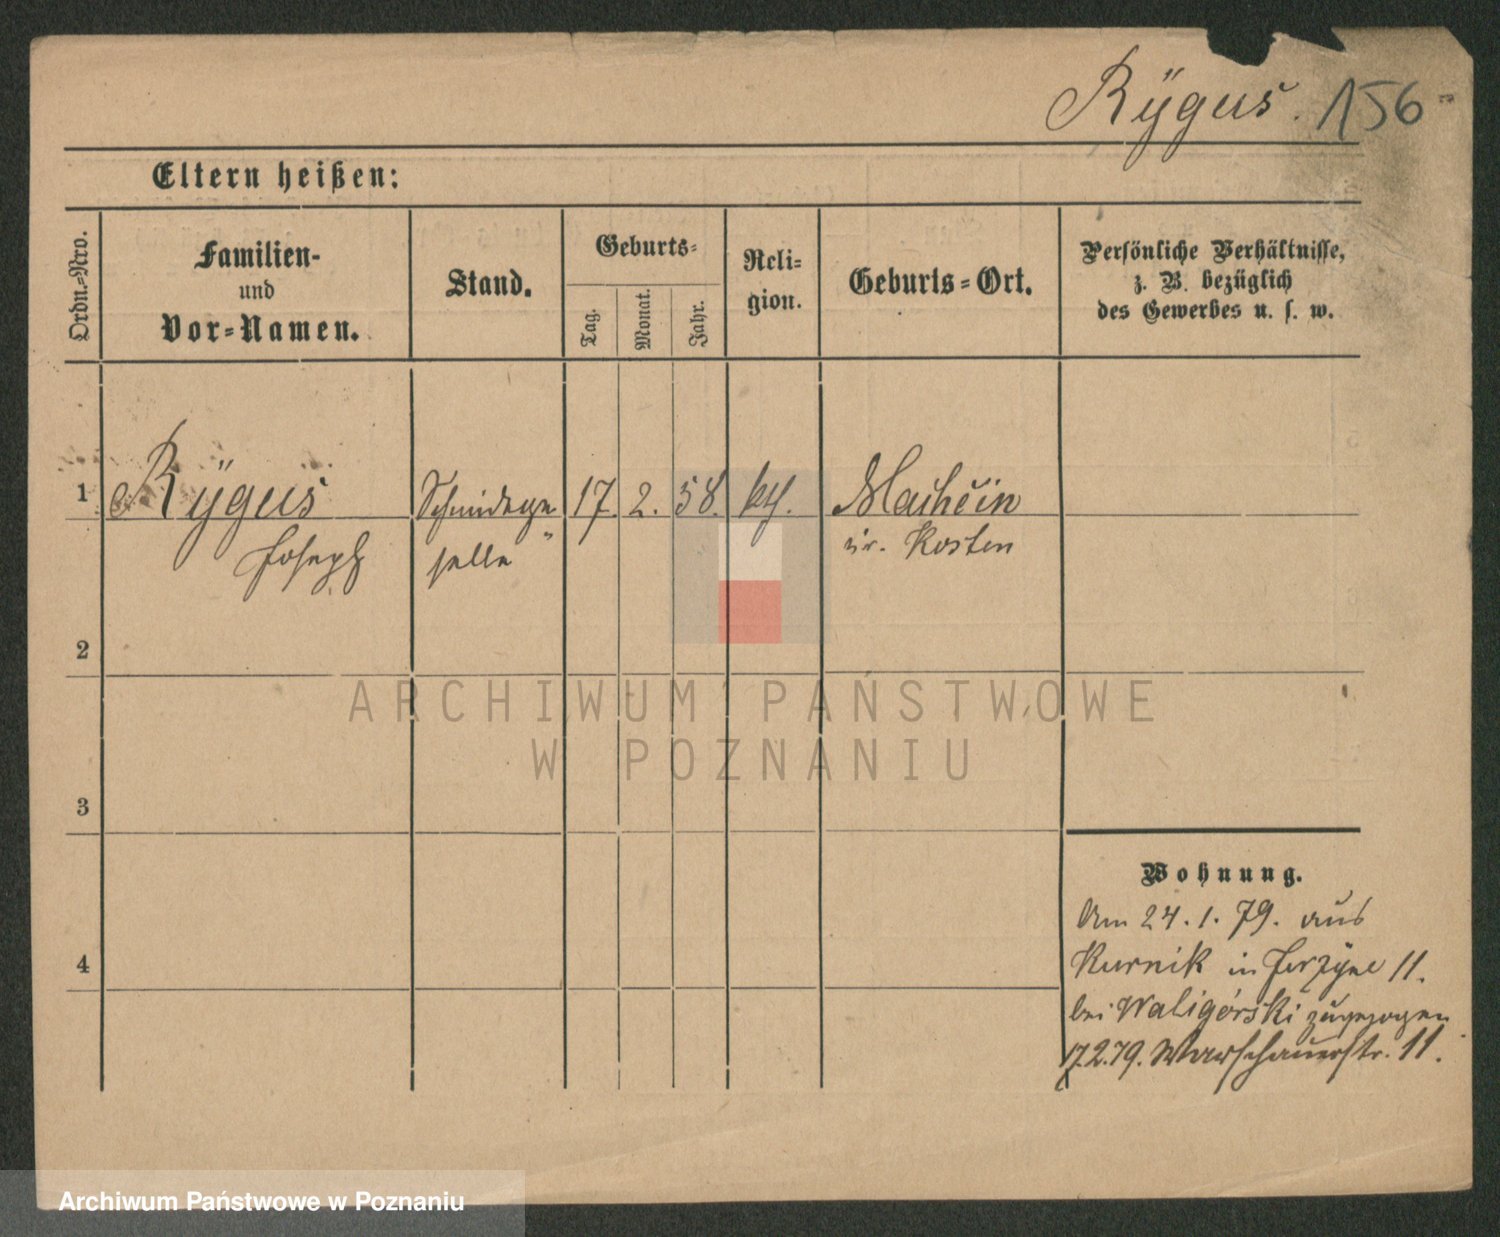 Rÿgus. 156
Eltern heißen:
Ordn.-Nro.
Familien-
und
Vor-Namen.
Stand.
Geburts-
Tag.
Monat.
Jahr.
Reli-
gion.
Geburts-Ort.
Persönliche Verhältnisse,
z. B. bezüglich
des Gewerbes u. s. w.
1 Rÿgus Schmidege 17. 2. 58. kth.
Joseph selle Kr. Kosten
2
3
4
ARCHIWUM PAŃSTWOWE
W POZNANIU
Wohnung.
Am 24.1.79. aus
Kurnik in 11.
bei Waligórski zugezogen
17.2.79. Warschauerstr. 11.
Archiwum Państwowe w Poznaniu